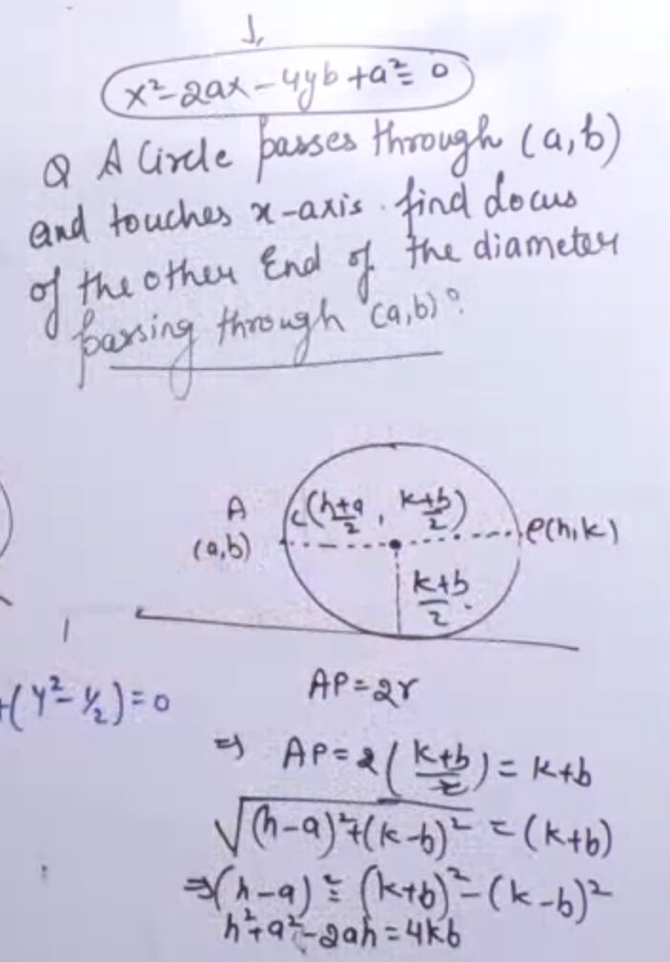 1,
x²-2ax-4yb+a²=0
Q A Circle passes through (a,b)
and touches x-axis. find locus
of the other End of the diameter
passing through (a,b)?
A
(a,b)
C(h+a/2, k+b/2)
P(h,k)
k+b/2
+(y²-1/2)=0
AP=2r
⇒ AP=2(k+b/2)=k+b
√(h-a)²+(k-b)² = (k+b)
⇒(h-a)²=(k+b)²-(k-b)²
h²+a²-2ah=4kb